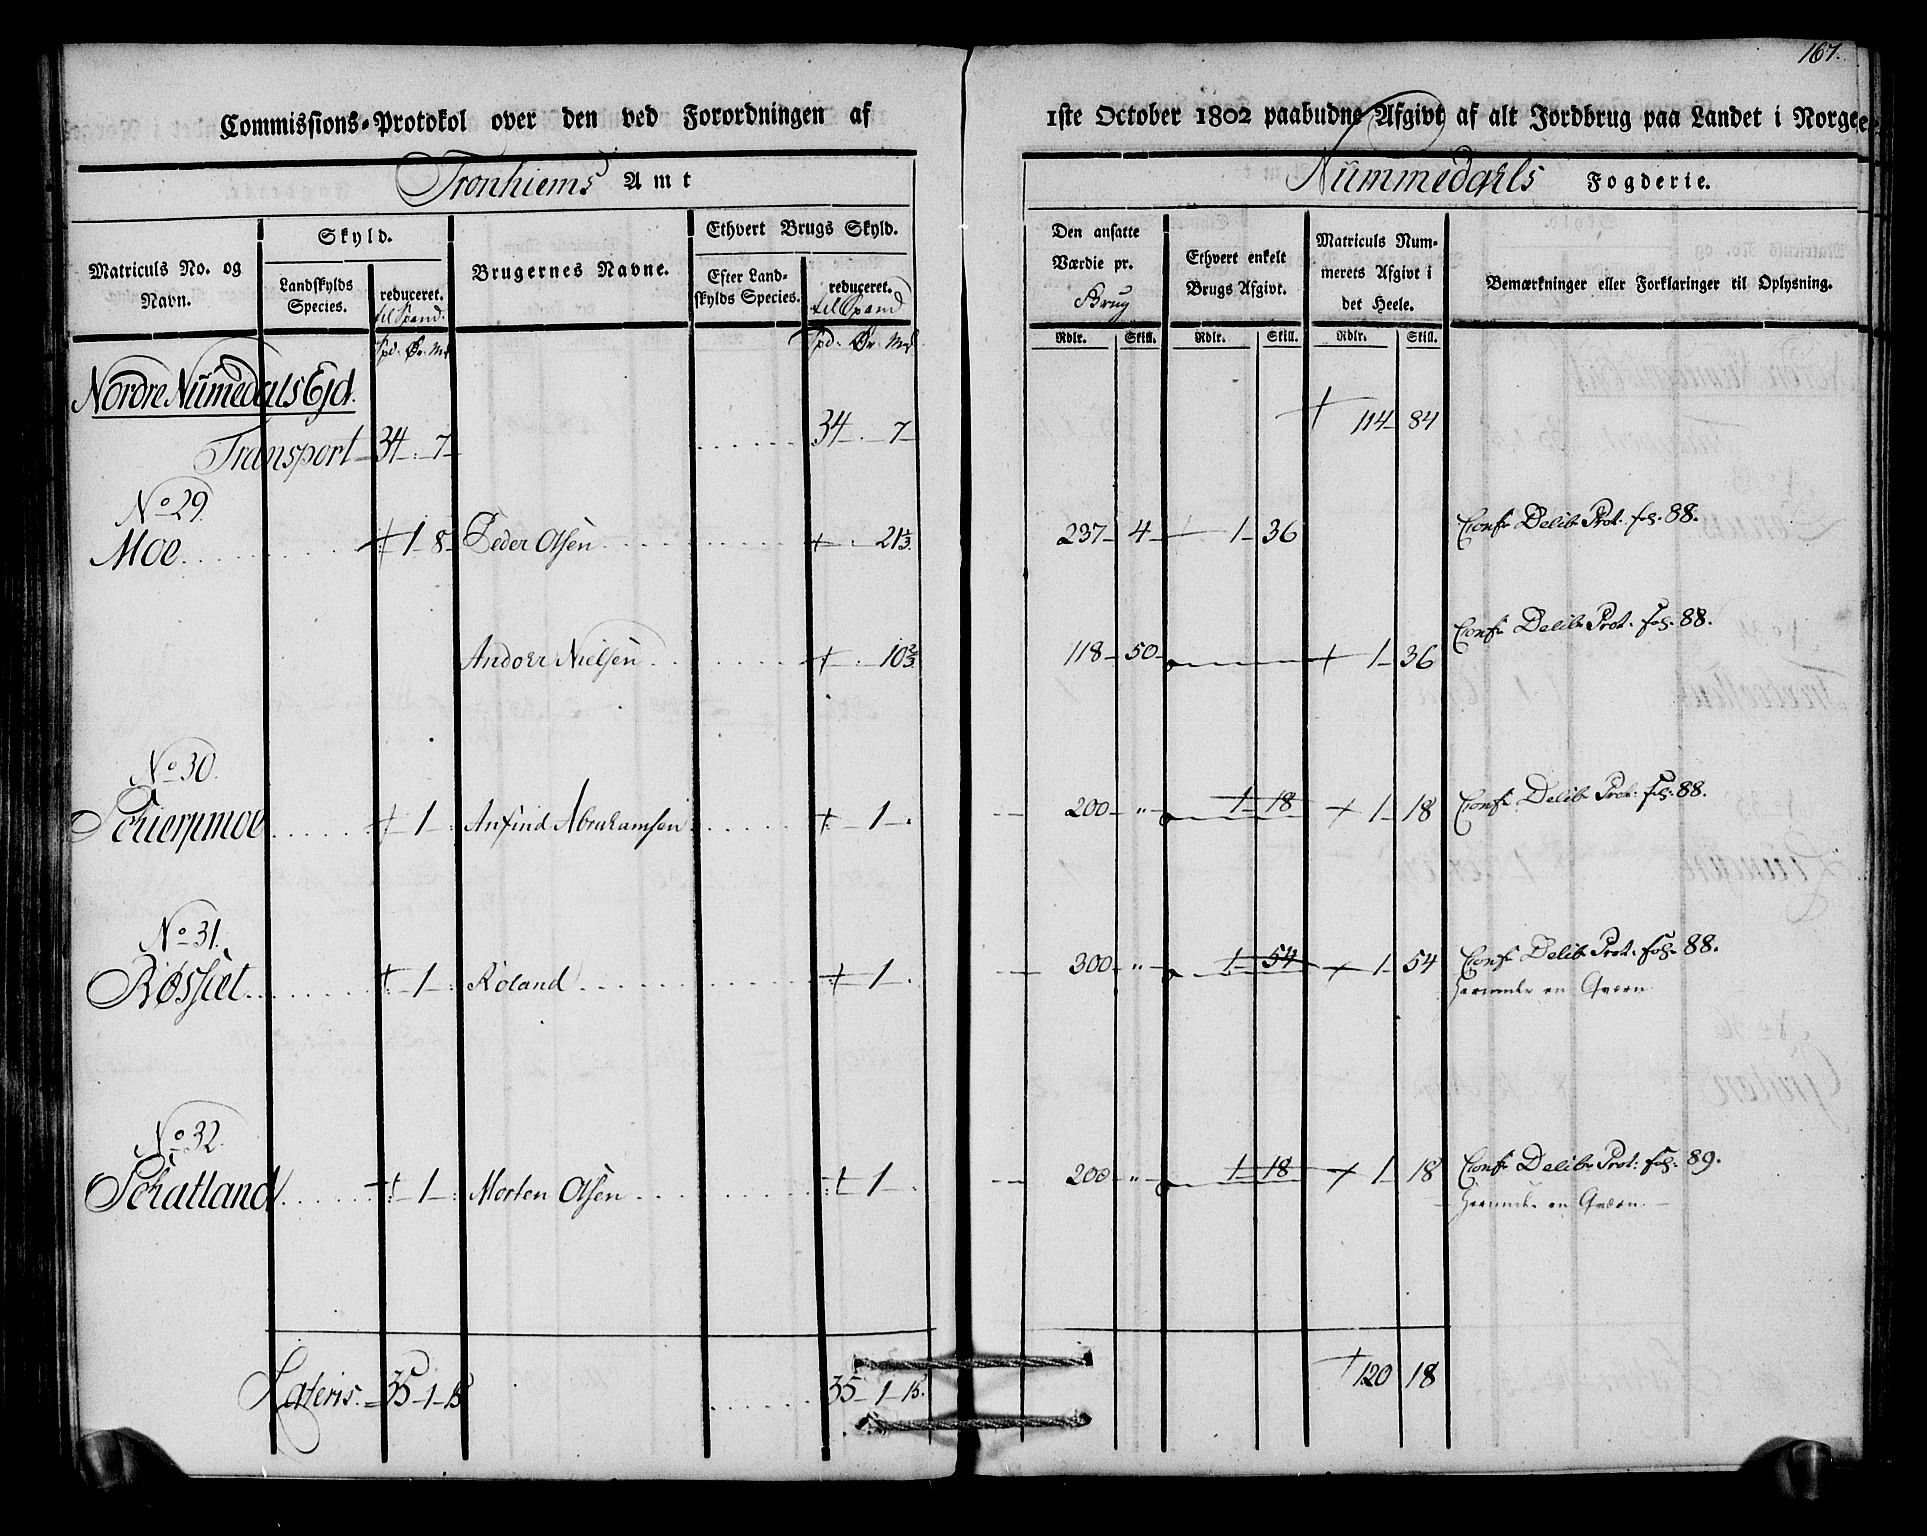 167.
Commissions-Protokol over den ved Forordningen af 1ste October 1802 paabudne Afgivt af alt Jordbrug paa Landet i Norge
Tronhiems Amt
Nummedahls Fogderie.
Matriculs No. og Navn.
Skyld.
Landskylds Species.
reduceret.
til Spand.
Brugernes Navne.
Ethvert Brugs Skyld.
Efter Landskylds Species.
reduceret.
til Spand
Den ansatte Værdie pr. Brug
Ethvert enkelt Brugs Afgivt.
Matriculs Nummerets Afgivt i det Heele.
Bemærkninger eller Forklaringer til Oplysning.
Spd. Ør. Mrk
Spd. Ør. Mrk
Rdlr. Skill. Rdlr. Skill. Rdlr. Skill.
Nordre Numedals Ejd.
Transport 34 - 7 34 - 7 114 84
No 29.
Moe 1 8 Peder Olsen 21 1/3 237 4 1 36 Conf Delib Prot. fol. 88.
Andorr Nielsen 10 2/3 118 50 1 36 Conf Delib Prot. fol. 88.
No 30.
Schierpmoe 1 Anfind Abrahamsen 1 200 " 1 18 1 18 Conf Delib Prot. fol. 88.
No 31.
Røssæt 1 Roland 1 300 " 1 54 1 54 Conf Delib Prot. fol. 88.
Herunder en Qværn
No 32.
Schatland 1 Morten Olsen 1 200 " 1 18 1 18 Conf Delib Prot. fol. 89.
Herunder en Qværn.
Lateris 35 - 1 - 15 35 - 1 - 15. 120 18